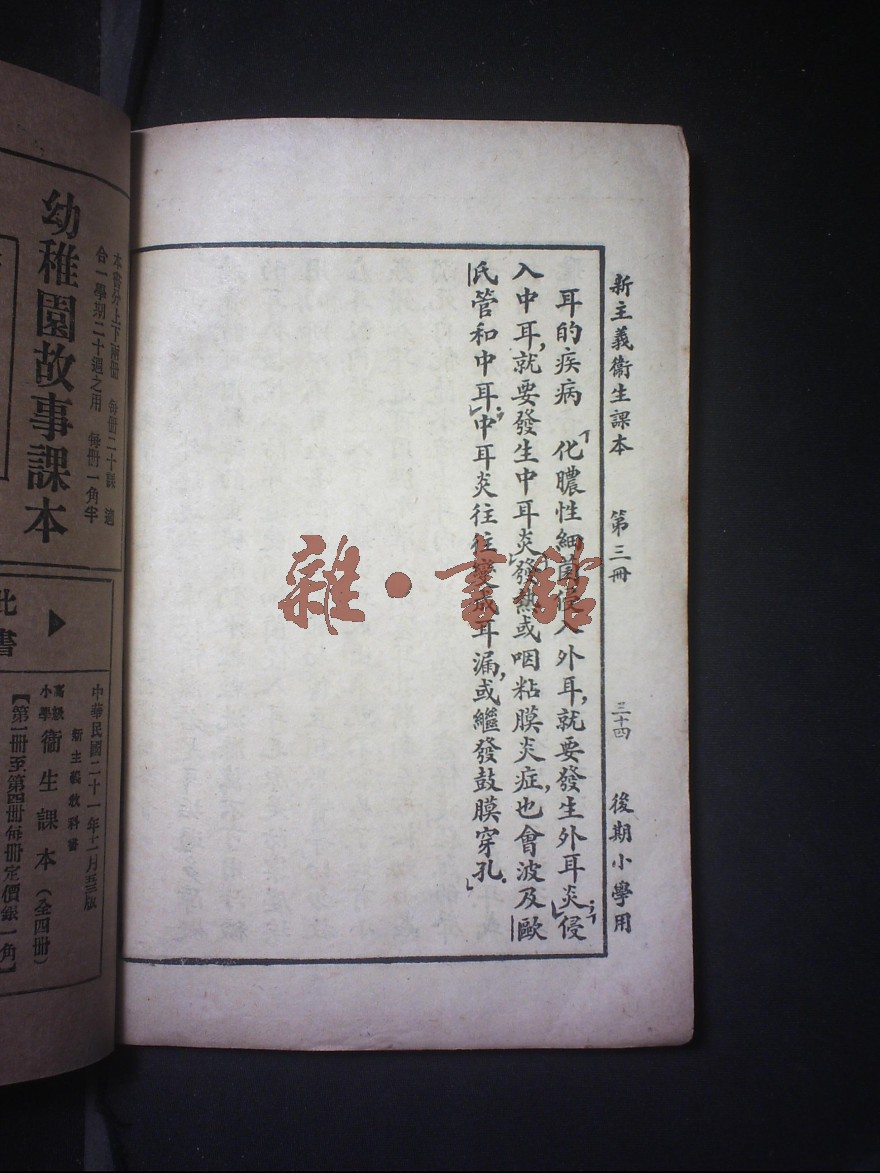 新主義衞生課本　第三冊　三十四　後期小學用
耳的疾病　「化膿性細菌侵入外耳，就要發生外耳炎；」「侵
入中耳，就要發生中耳炎；」發熱或咽粘膜炎症，也會波及歐
氏管和中耳；」中耳炎往往變成耳漏，或繼發鼓膜穿孔。」
雜·書館
本書分上下兩册　每册二十課　適
合一學期二十週之用　每册一角半
幼稚園故事課本
此書
中華民國二十一年十一月
新主義教科書
高級小學衞生課本（全四冊）
【第一冊至第四冊每冊定價銀一角】